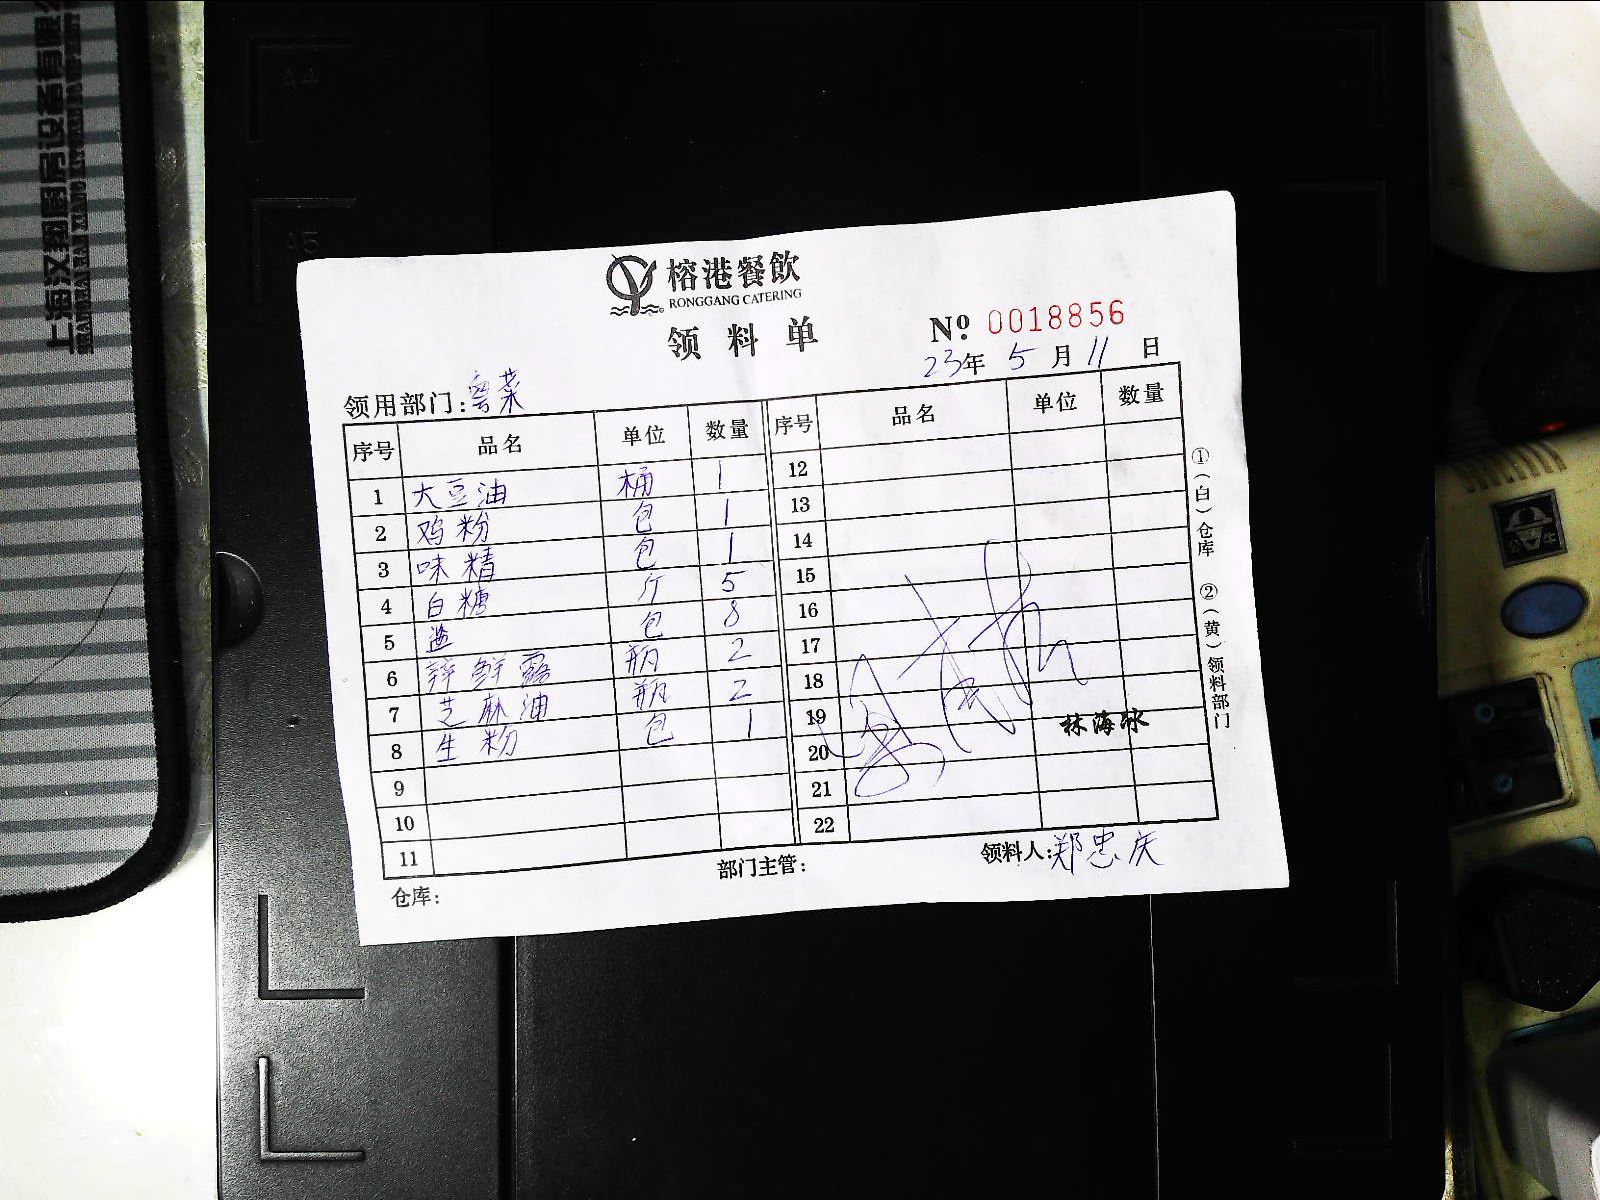 上海汉翔厨房设备有限公
SHANGHAI HAN XIANG KITCHEN
A4
A5
榕港餐飲
RONGGANG CATERING
领料单
Nº 0018856
23年 5月 11日
领用部门:粤菜
序号 品名 单位 数量 序号 品名 单位 数量
1 大豆油 桶 1 12
2 鸡粉 包 1 13
3 味精 包 1 14
4 白糖 斤 5 15
5 盐 包 8 16
6 鲜露 瓶 2 17
7 芝麻油 瓶 2 18
8 生粉 包 1 19
9 20
10 21
11 22
林海冰
①(白)仓库 ②(黄)领料部门
仓库: 部门主管: 领料人:郑忠庆
公牛